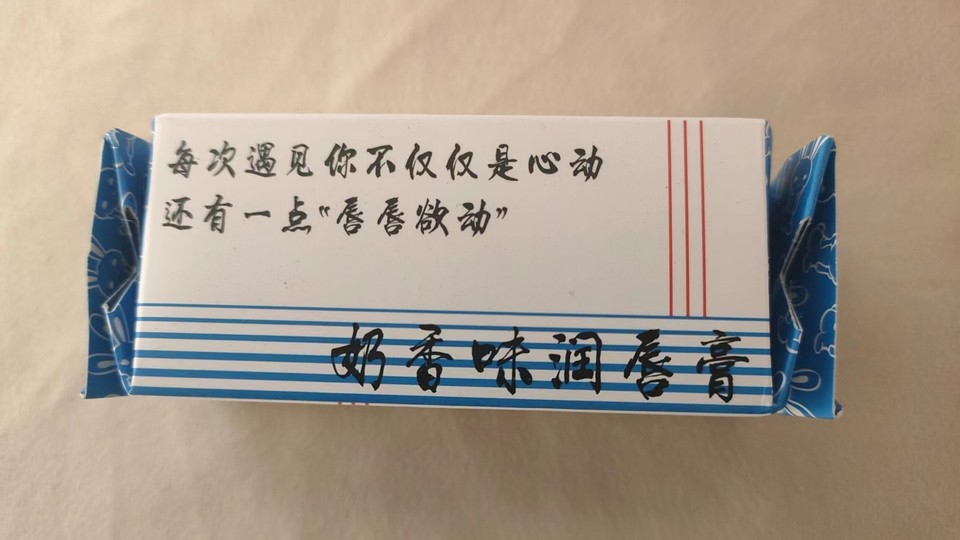 每次遇见你不仅仅是心动
还有一点“唇唇欲动”
奶香味润唇膏